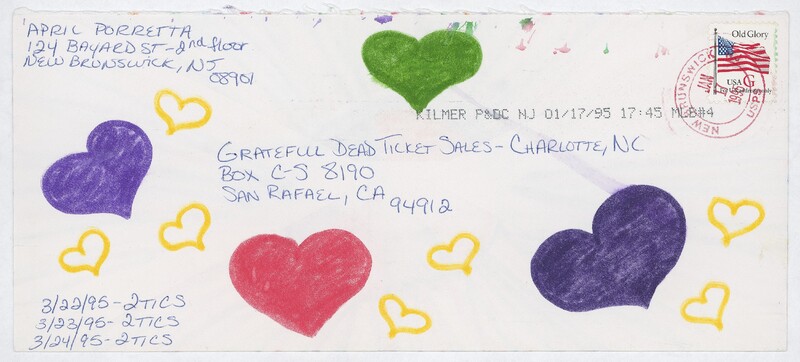 APRIL PORRETTA
124 BAYARD ST - 2nd floor
NEW BRUNSWICK, NJ
08901
Old Glory
USA G
NEW BRUNSWICK
USPS
KILMER P&DC NJ 01/17/95 17:45 MLB#4
GRATEFUL DEAD TICKET SALES - CHARLOTTE, NC
BOX C-S 8190
SAN RAFAEL, CA
94912
3/22/95 - 2TICS
3/23/95 - 2TICS
3/24/95 - 2TICS